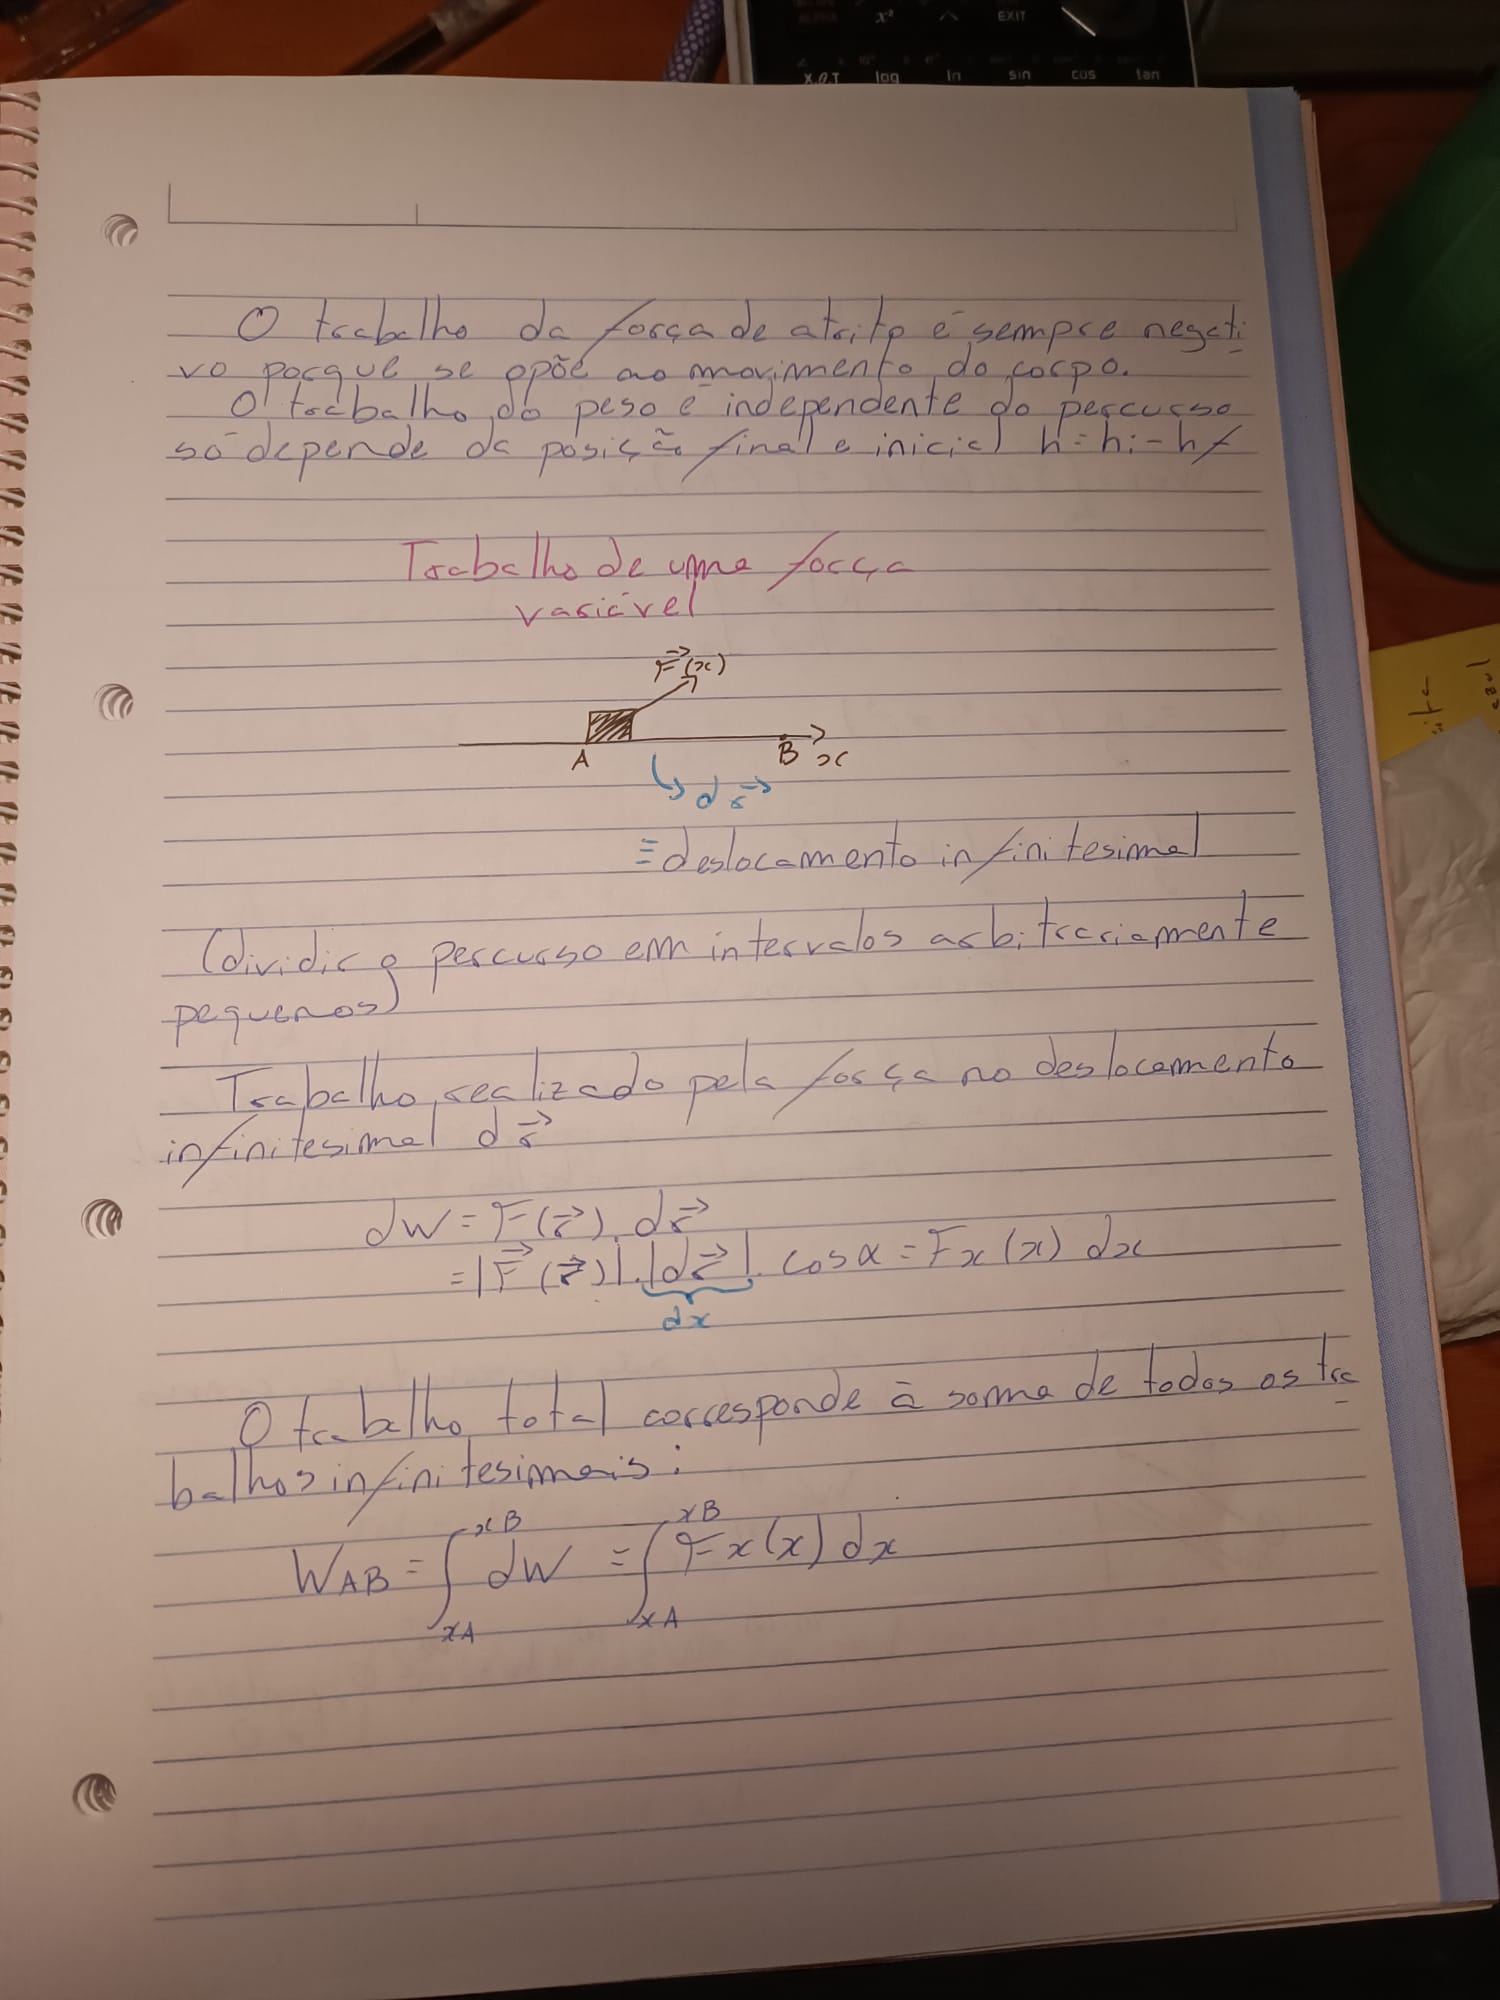 x² ^ EXIT
X,θ,T log ln sin cos tan
O trabalho da força de atrito é sempre negati-
vo porque se opõe ao movimento do corpo.
O trabalho do peso é independente do percurso
só depende da posição final e inicial h = hi - hf
Trabalho de uma força
variável
F⃗(x)
A B x
dr⃗
≡ deslocamento infinitesimal
(dividir o percurso em intervalos arbitrariamente
pequenos)
Trabalho realizado pela força no deslocamento
infinitesimal dr⃗
dW = F(r⃗) . dr⃗
= |F⃗(r⃗)| . |dr⃗| . cos α = Fx(x) dx
dx
O trabalho total corresponde à soma de todos os tra-
balhos infinitesimais:
WAB = ∫xA^xB dW = ∫xA^xB Fx(x) dx